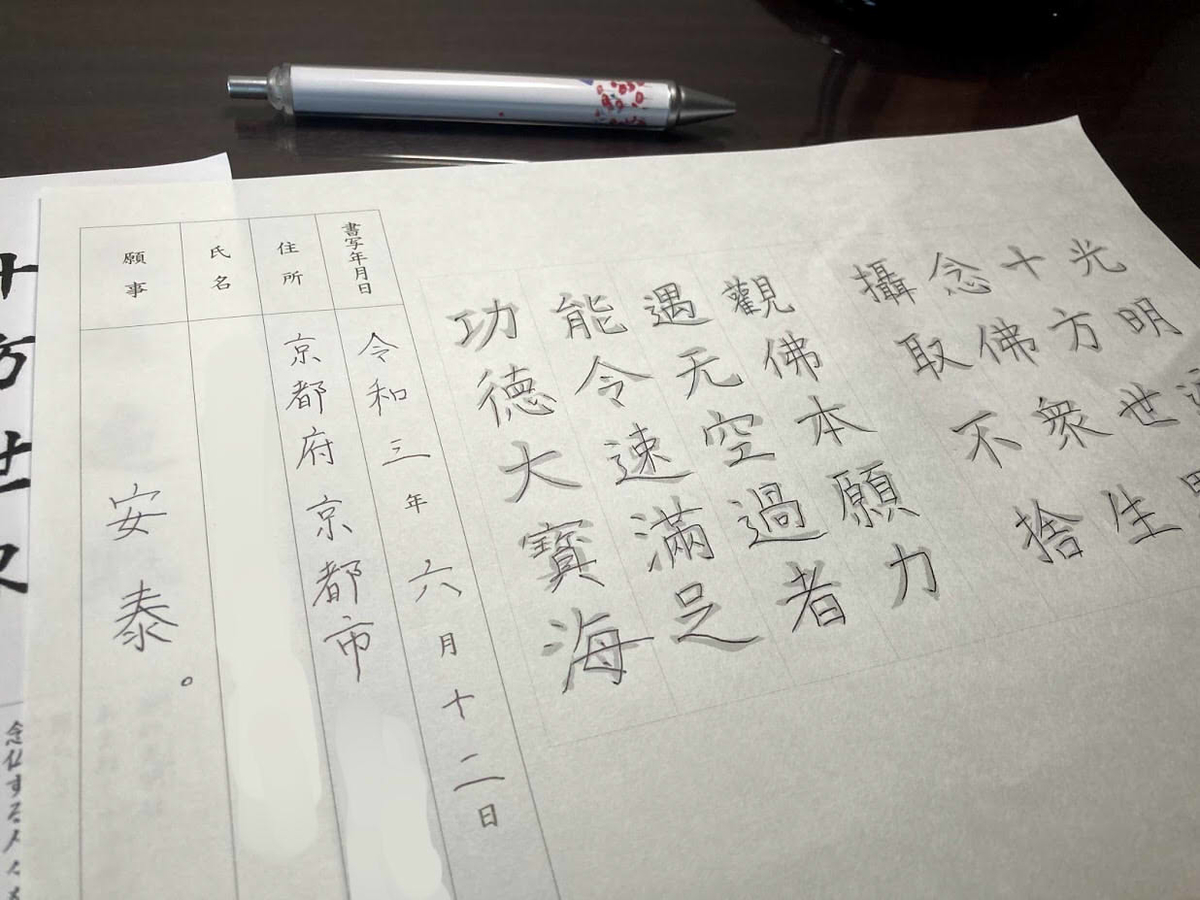 光明
十方世
念佛衆生
攝取不捨
觀佛本願力
遇无空過者
能令速滿足
功德大寳海
書写年月日 令和三年六月十二日
住所 京都府京都市
氏名
願事 安泰。
十方世
念仏する人々